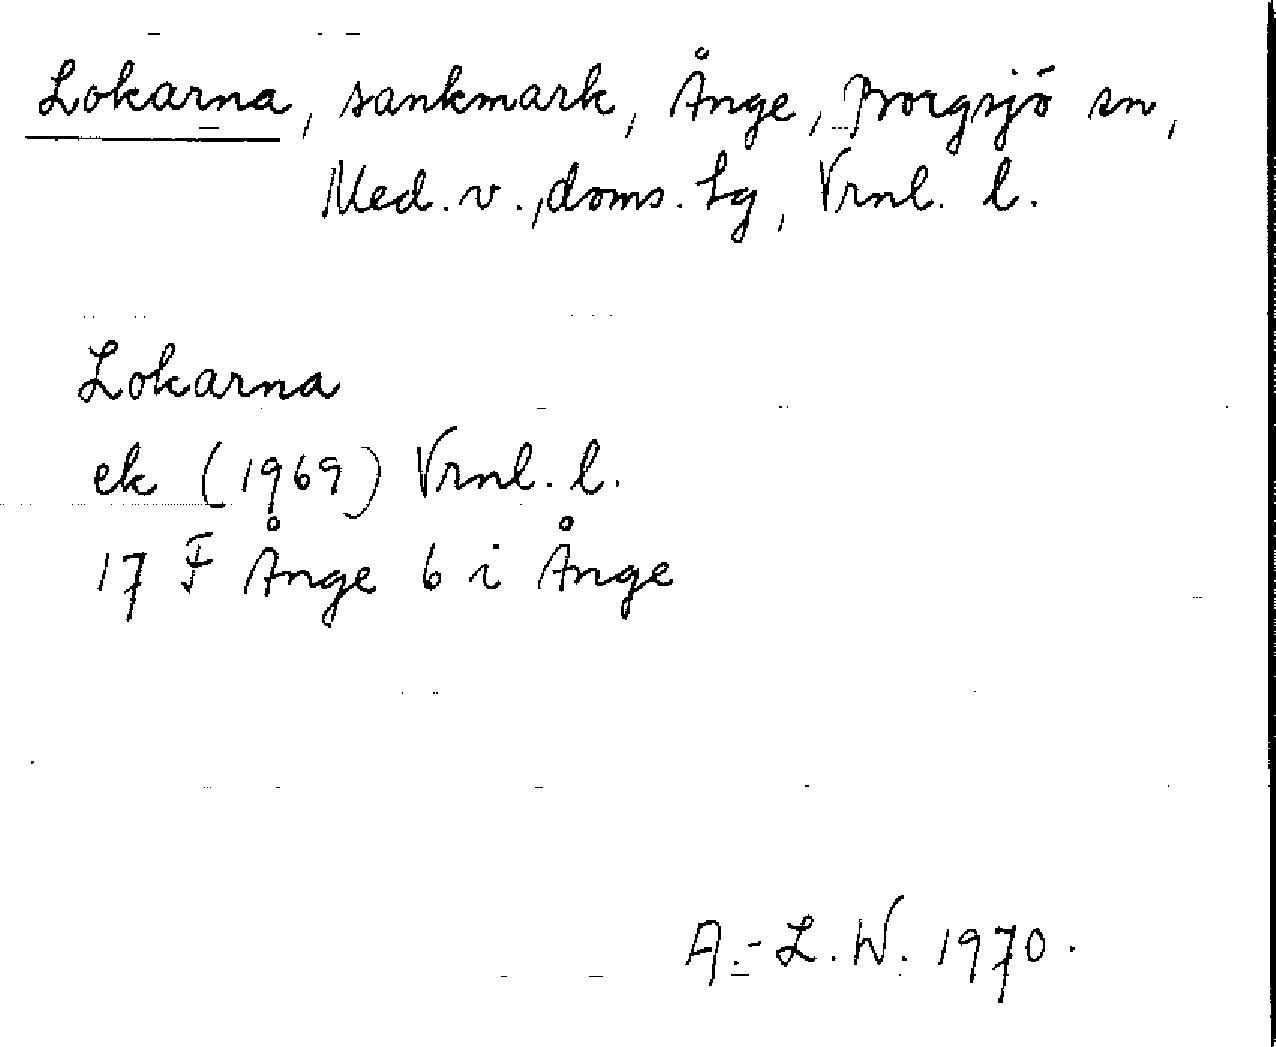 Lokarna, sankmark, Ånge, Borgsjö sn,
Med. v., doms. lg, Vrnl. l.
Lokarna
ek (1969) Vrnl. l.
17 F Ånge 6 i Ånge
A.-L. W. 1970.